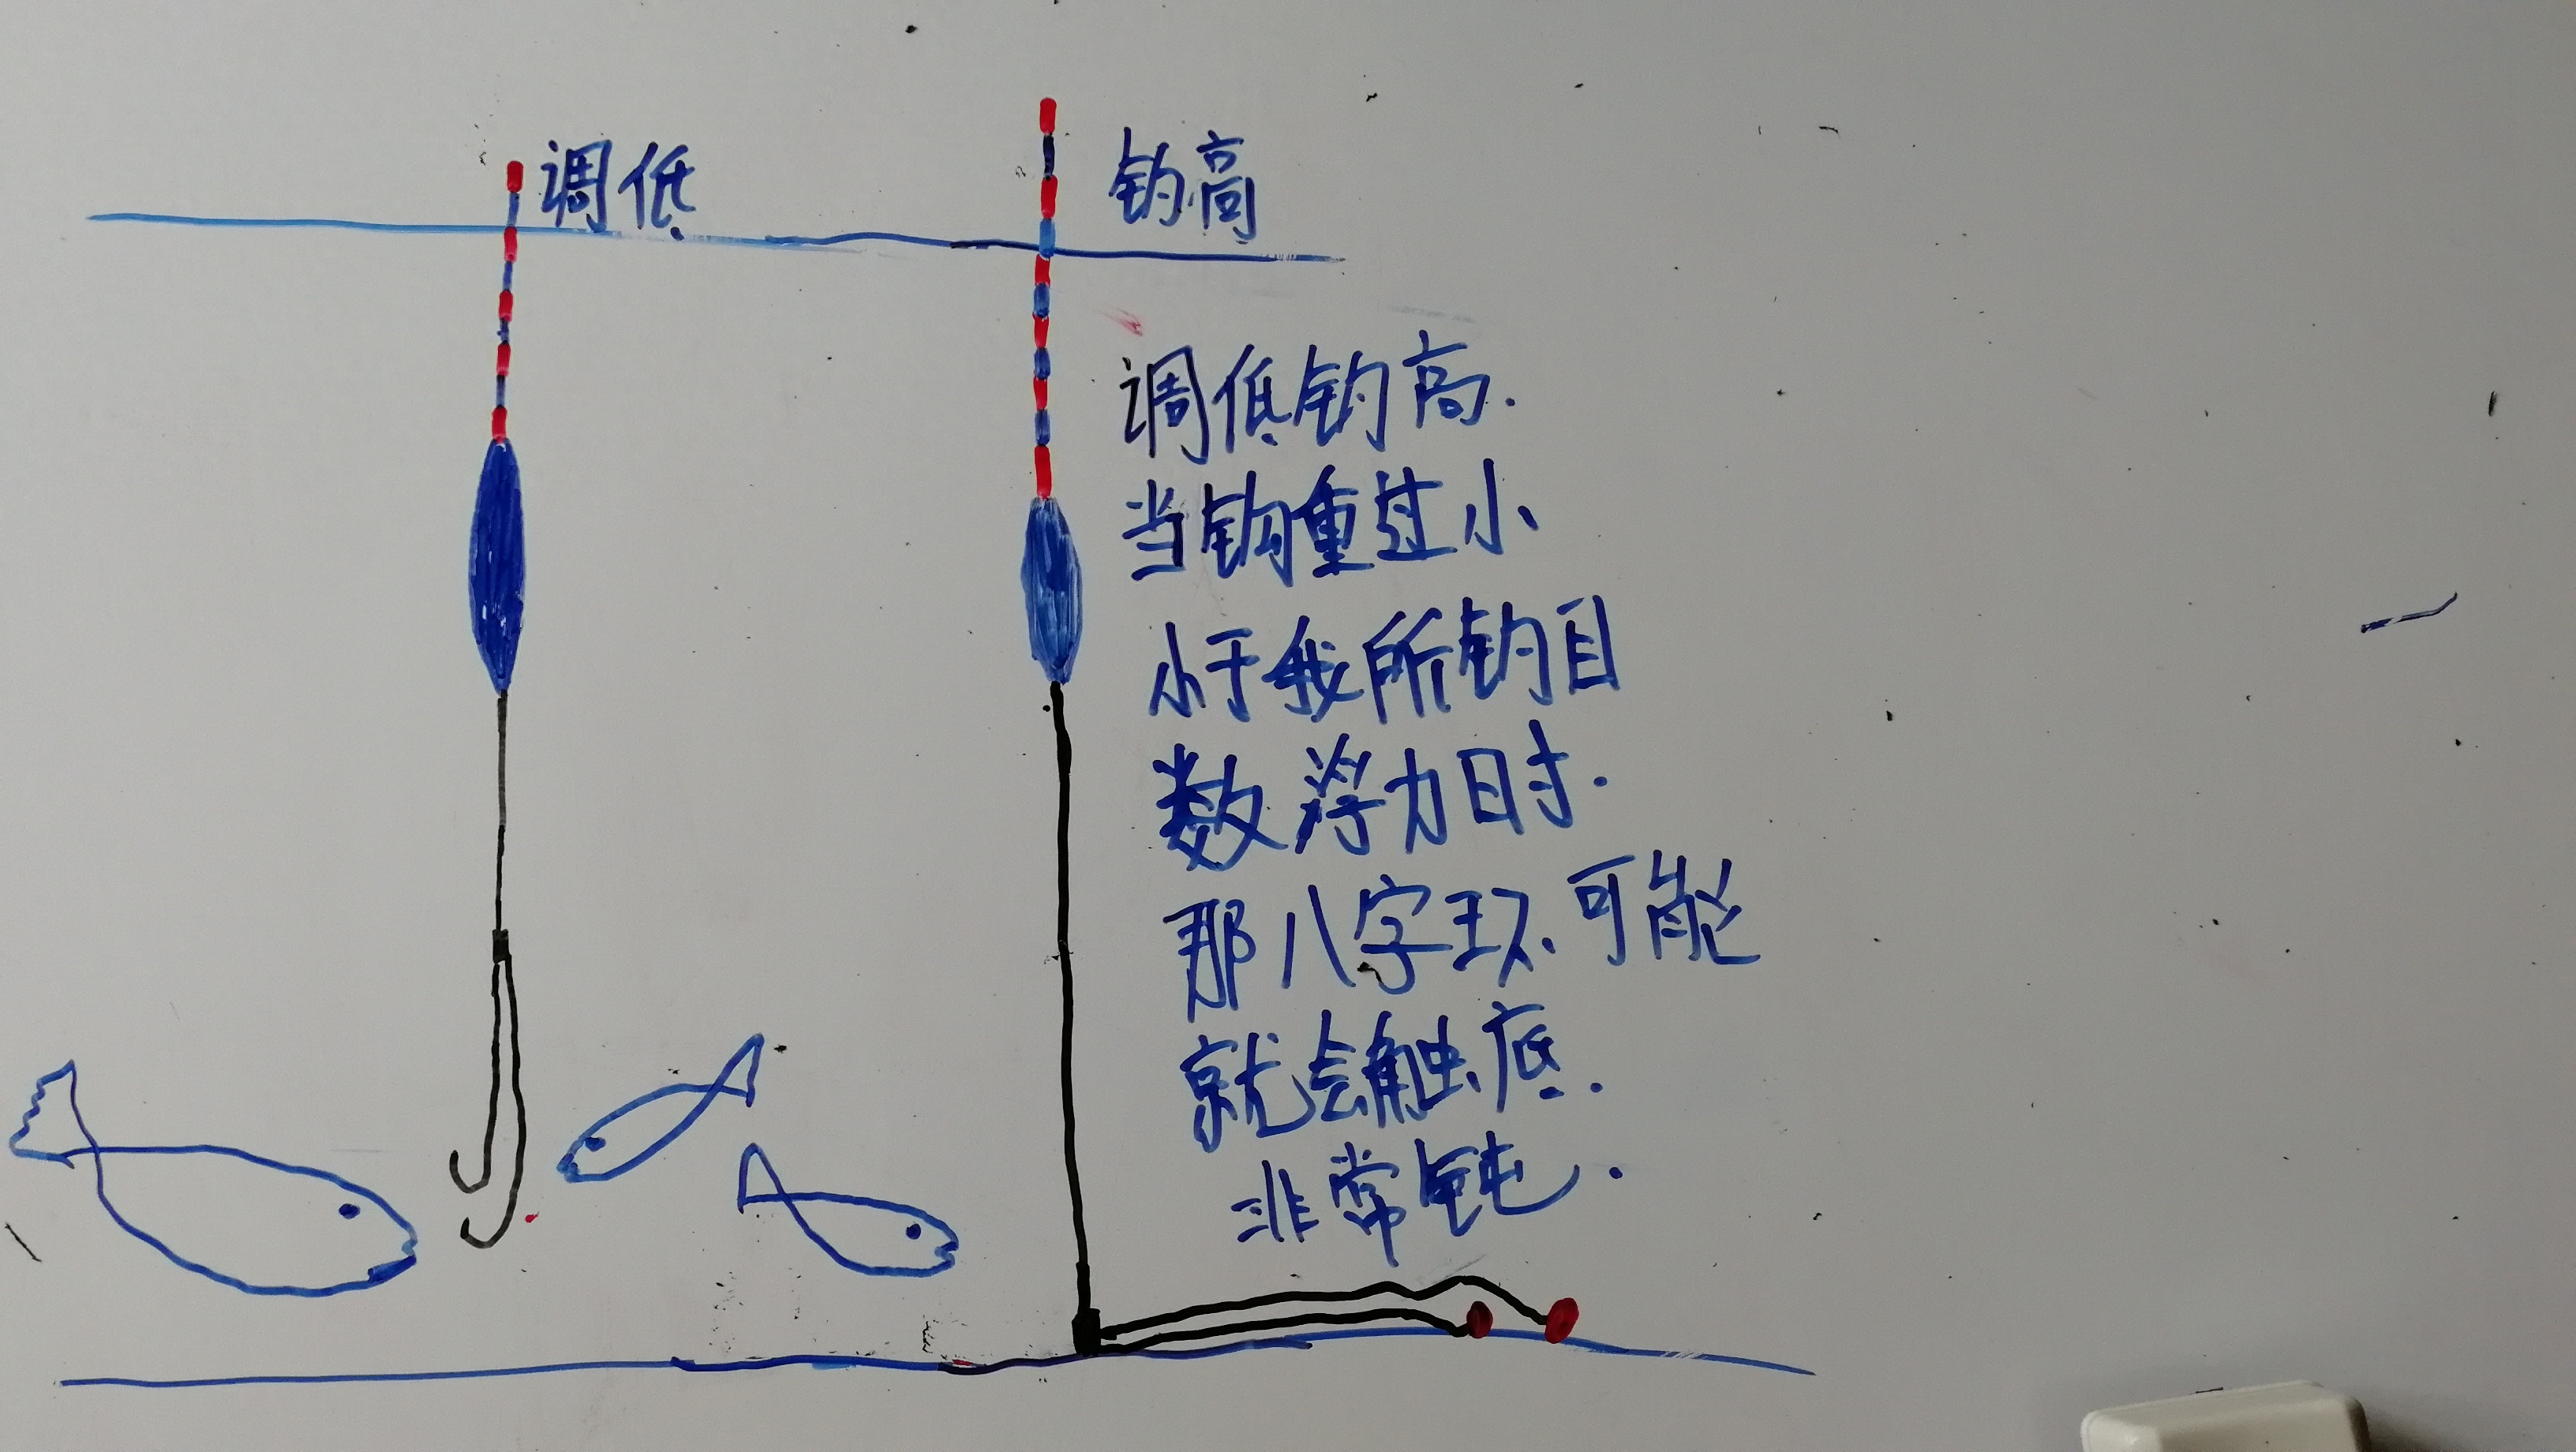 调低
钓高
调低钓高.
当钩重过小
小于我所钓目
数浮力时.
那八字环可能
就会触底.
非常钝.